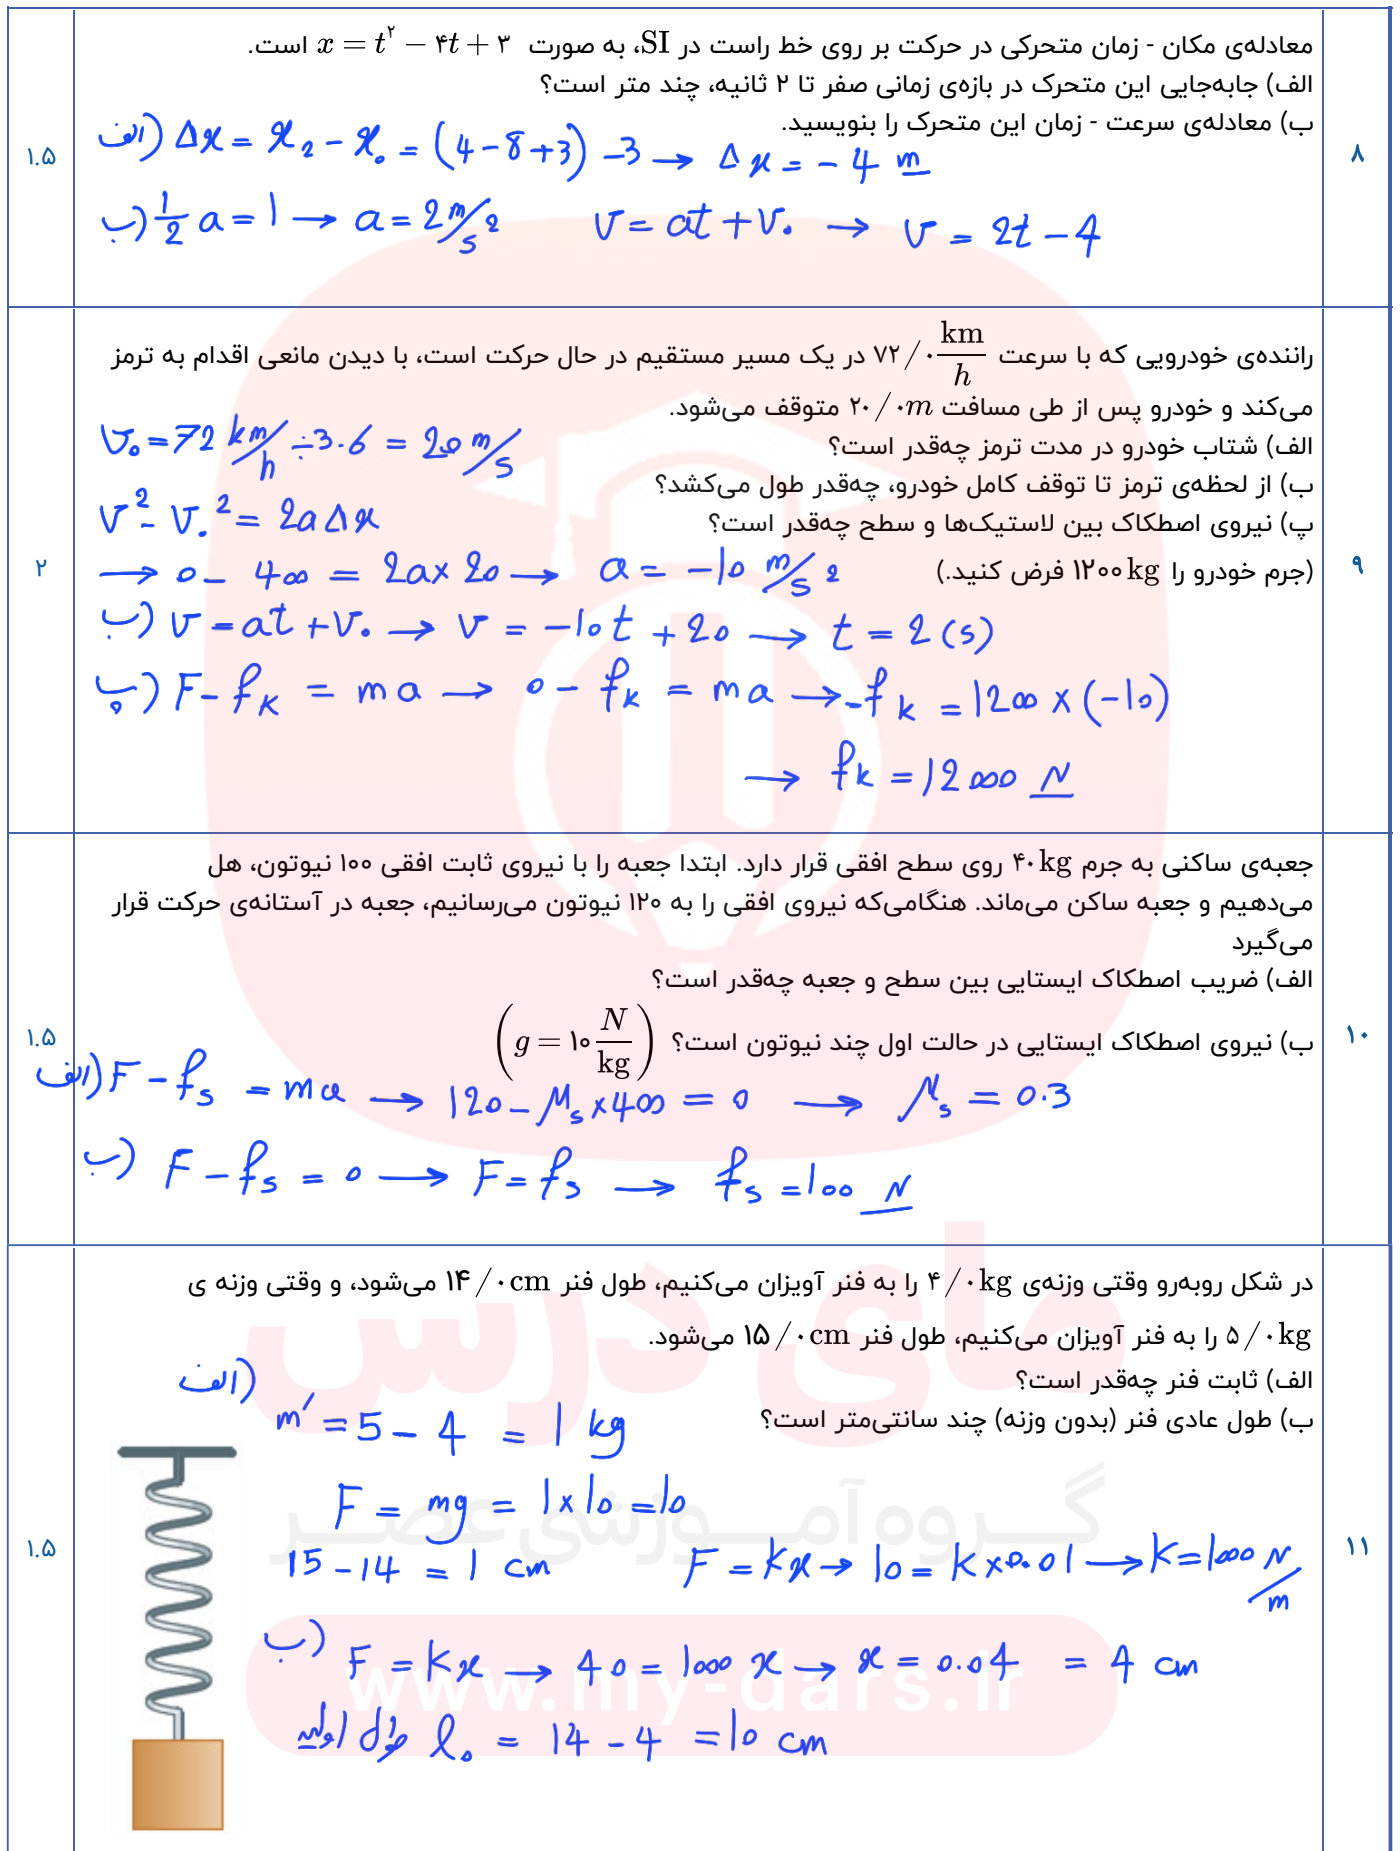 ۸
معادله‌ی مکان - زمان متحرکی در حرکت بر روی خط راست در SI، به صورت x = t² − ۴t + ۳ است.
الف) جابه‌جایی این متحرک در بازه‌ی زمانی صفر تا ۲ ثانیه، چند متر است؟
ب) معادله‌ی سرعت - زمان این متحرک را بنویسید.
الف) Δx = x₂ − x₀ = (4 − 8 + 3) − 3 → Δx = − 4 m
ب) 1/2 a = 1 → a = 2 m/s² v = at + v₀ → v = 2t − 4
۱.۵
۹
راننده‌ی خودرویی که با سرعت ۷۲/۰ km/h در یک مسیر مستقیم در حال حرکت است، با دیدن مانعی اقدام به ترمز
می‌کند و خودرو پس از طی مسافت ۲۰/۰m متوقف می‌شود.
الف) شتاب خودرو در مدت ترمز چه‌قدر است؟
ب) از لحظه‌ی ترمز تا توقف کامل خودرو، چه‌قدر طول می‌کشد؟
پ) نیروی اصطکاک بین لاستیک‌ها و سطح چه‌قدر است؟
(جرم خودرو را ۱۲۰۰ kg فرض کنید.)
v₀ = 72 km/h ÷ 3.6 = 20 m/s
v² − v₀² = 2aΔx
→ 0 − 400 = 2a × 20 → a = −10 m/s²
ب) v = at + v₀ → v = −10t + 20 → t = 2 (s)
پ) F − fk = ma → 0 − fk = ma → −fk = 1200 × (−10)
→ fk = 12000 N
۲
۱۰
جعبه‌ی ساکنی به جرم ۴۰kg روی سطح افقی قرار دارد. ابتدا جعبه را با نیروی ثابت افقی ۱۰۰ نیوتون، هل
می‌دهیم و جعبه ساکن می‌ماند. هنگامی‌که نیروی افقی را به ۱۲۰ نیوتون می‌رسانیم، جعبه در آستانه‌ی حرکت قرار
می‌گیرد
الف) ضریب اصطکاک ایستایی بین سطح و جعبه چه‌قدر است؟
ب) نیروی اصطکاک ایستایی در حالت اول چند نیوتون است؟ (g = ۱۰ N/kg)
الف) F − fs = ma → 120 − μs × 400 = 0 → μs = 0.3
ب) F − fs = 0 → F = fs → fs = 100 N
۱.۵
۱۱
در شکل روبه‌رو وقتی وزنه‌ی ۴/۰kg را به فنر آویزان می‌کنیم، طول فنر ۱۴/۰cm می‌شود، و وقتی وزنه ی
۵/۰kg را به فنر آویزان می‌کنیم، طول فنر ۱۵/۰cm می‌شود.
الف) ثابت فنر چه‌قدر است؟
ب) طول عادی فنر (بدون وزنه) چند سانتی‌متر است؟
الف)
m′ = 5 − 4 = 1 kg
F = mg = 1×10 = 10
15 − 14 = 1 cm F = kx → 10 = k × 0.01 → k = 1000 N/m
ب) F = kx → 40 = 1000 x → x = 0.04 = 4 cm
طول اولیه l₀ = 14 − 4 = 10 cm
۱.۵
مای درس
گروه آموزشی عصر
www.my-dars.ir